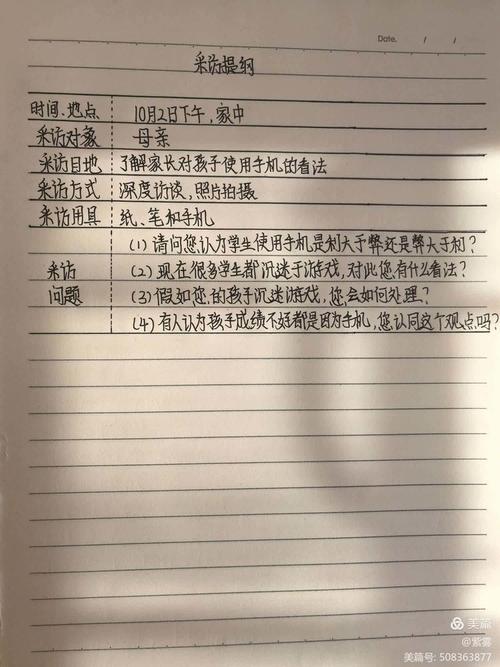 Date. / /
采访提纲
时间、地点 10月2日下午，家中
采访对象 母亲
采访目地 了解家长对孩子使用手机的看法
采访方式 深度访谈，照片拍摄
采访用具 纸、笔和手机
(1) 请问您认为学生使用手机是利大于弊还是弊大于利？
采访 (2) 现在很多学生都沉迷于游戏，对此您有什么看法？
问题 (3) 假如您的孩子沉迷游戏，您会如何处理？
(4) 有人认为孩子成绩不好都是因为手机，您认同这个观点吗？
美篇
@紫雾
美篇号: 508363877